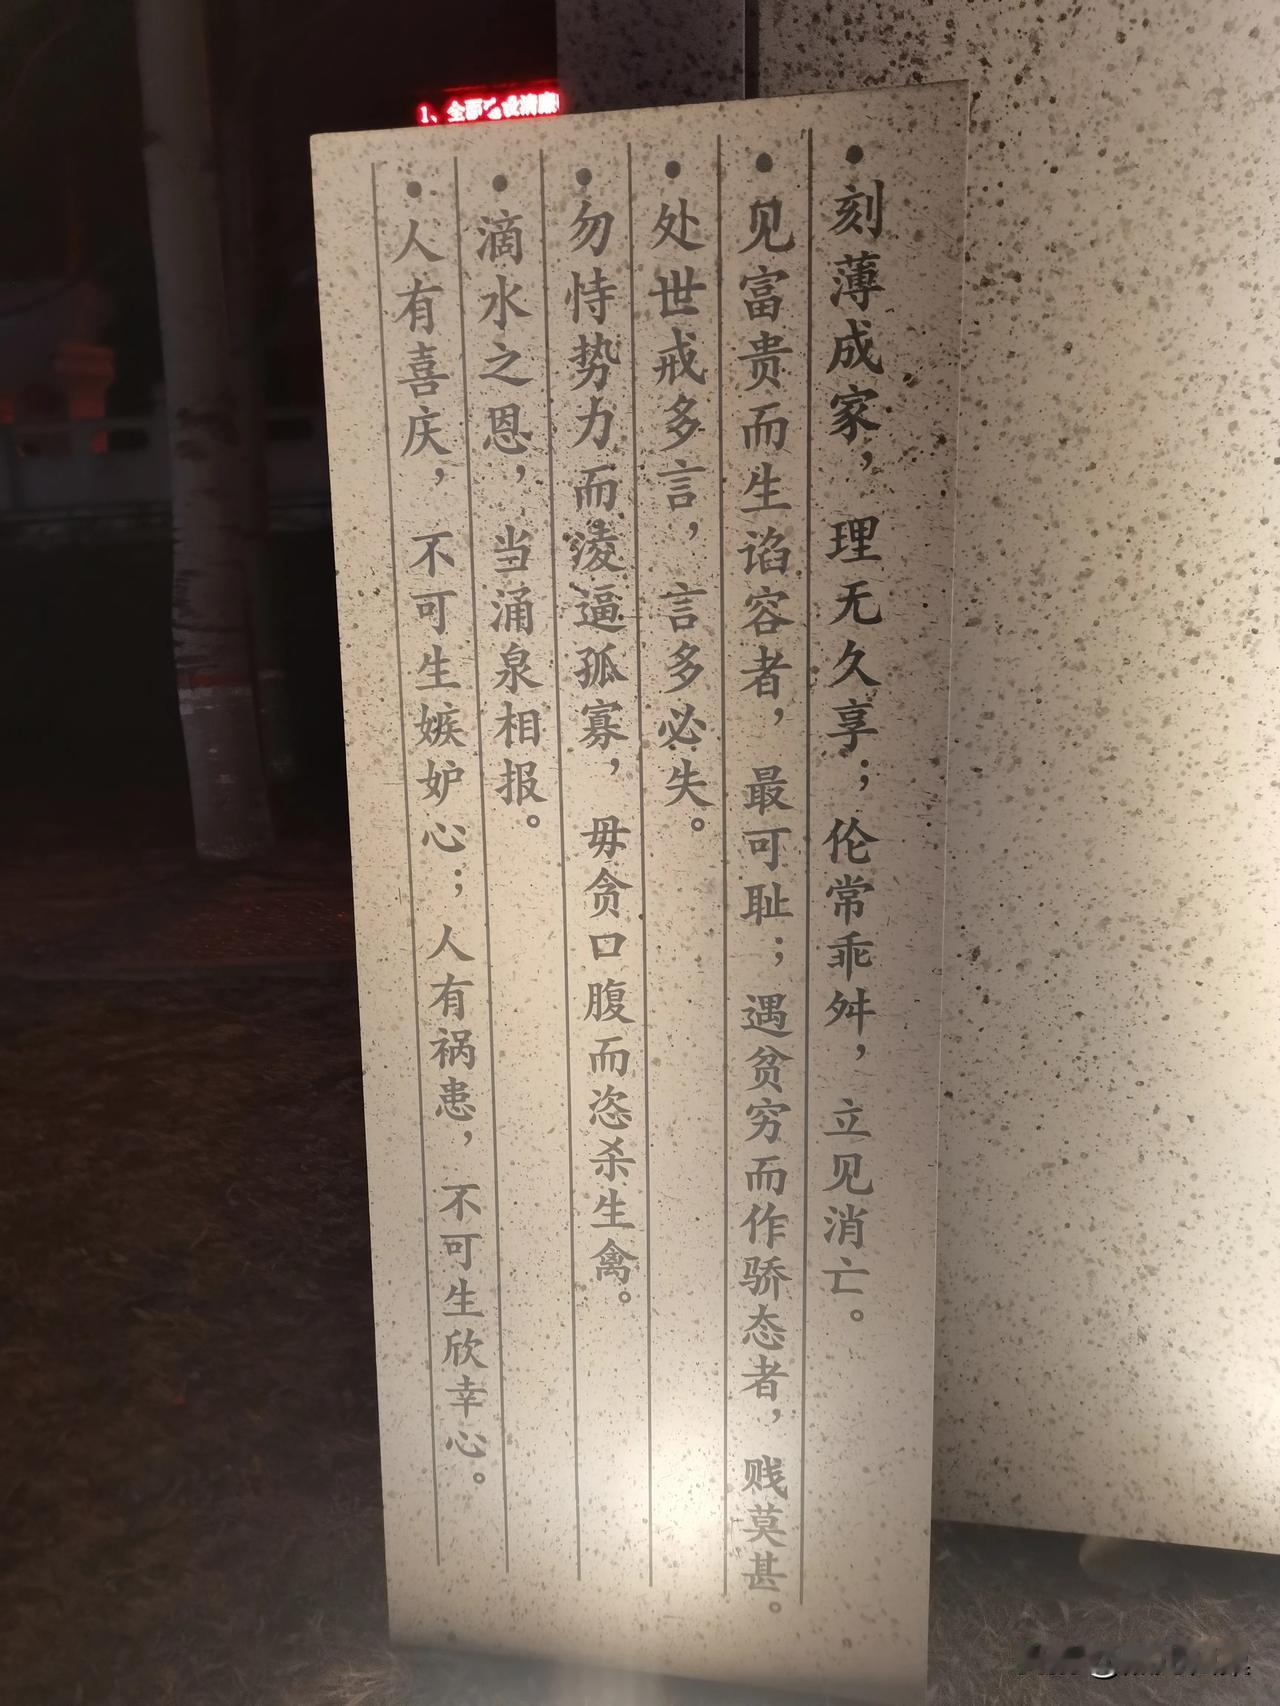 • 刻薄成家，理无久享；伦常乖舛，立见消亡。
• 见富贵而生谄容者，最可耻；遇贫穷而作骄态者，贱莫甚。
• 处世戒多言，言多必失。
• 勿恃势力而凌逼孤寡，毋贪口腹而恣杀生禽。
• 滴水之恩，当涌泉相报。
• 人有喜庆，不可生嫉妒心；人有祸患，不可生欣幸心。
1、全部